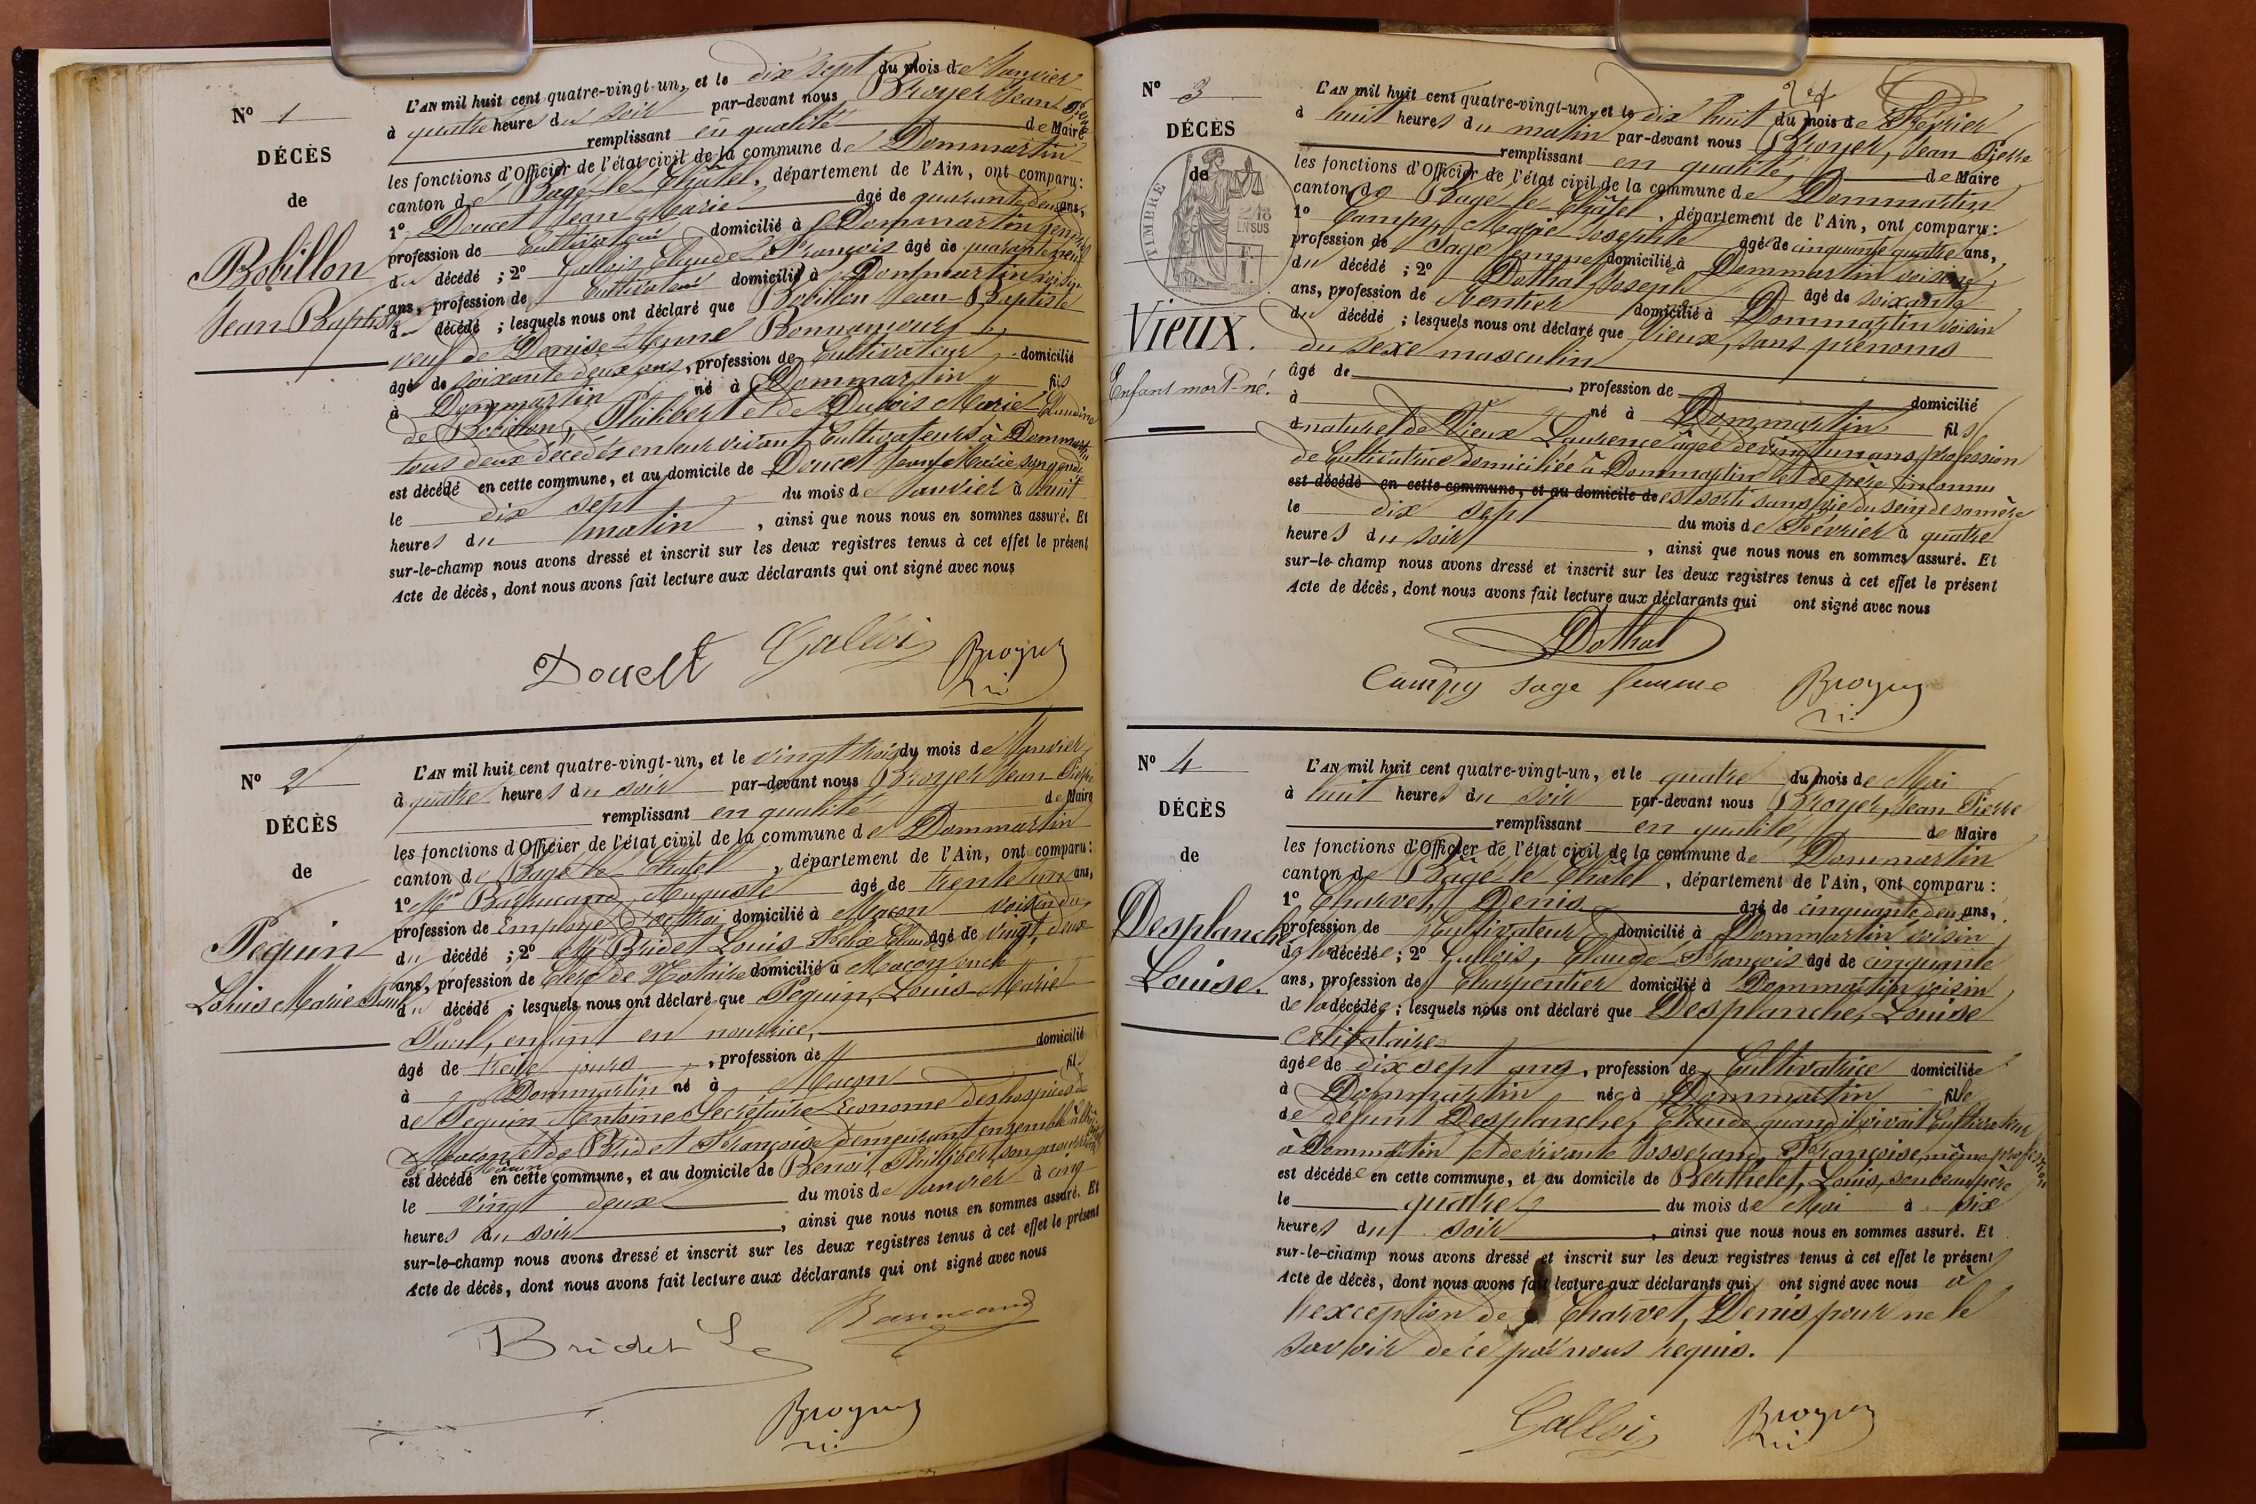 N° 1
DÉCÈS
de
Bobillon
Jean Baptiste
L'AN mil huit cent quatre-vingt-un, et le dix sept du mois de Janvier
à quatre heure du soir par-devant nous Broyer Jean Pierre
remplissant en qualité de Maire
les fonctions d'Officier de l'état civil de la commune de Dommartin
canton de Bagé-le-Châtel, département de l'Ain, ont comparu:
1° Doucet Jean Marie âgé de quarante deux ans,
profession de Cultivateur domicilié à Dommartin gendre
du décédé ; 2° Gallois Claude François âgé de quarante neuf
ans, profession de Cultivateur domicilié à Dommartin voisin
du décédé ; lesquels nous ont déclaré que Bobillon Jean-Baptiste
veuf de Denise Anne Bonnamour
âgé de soixante deux ans, profession de Cultivateur, domicilié
à Dommartin né à Dommartin fils
de Bobillon, Philibert et de Dubois Marie Claudine
tous deux décédés en leur vivant Cultivateurs à Dommartin
est décédé en cette commune, et au domicile de Doucet Jean Marie son gendre
le dix sept du mois de Janvier à huit
heures du matin, ainsi que nous nous en sommes assuré. Et
sur-le-champ nous avons dressé et inscrit sur les deux registres tenus à cet effet le présent
Acte de décès, dont nous avons fait lecture aux déclarants qui ont signé avec nous
Doucet Gallois Broyer
N° 2
DÉCÈS
de
Pequin
Louis Marie Paul
L'AN mil huit cent quatre-vingt-un, et le vingt trois du mois de Janvier
à quatre heures du soir par-devant nous Broyer Jean Pierre
remplissant en qualité de Maire
les fonctions d'Officier de l'état civil de la commune de Dommartin
canton de Bagé-le-Chatel, département de l'Ain, ont comparu:
1° Mr Auguste âgé de trente un ans,
profession de Employé domicilié à Macon voisin du
du décédé ; 2° Mr Bridet Louis Félix Claude âgé de vingt deux
ans, profession de Clerc de Notaire domicilié à Macon oncle
du décédé ; lesquels nous ont déclaré que Pequin, Louis-Marie
Paul, enfant en nourrice,
âgé de treize jours, profession de domicilié
à Dommartin né à Macon fils
de Pequin Antoine Secrétaire Econome des hospices de
Macon et de Bridet Françoise demeurant ensemble
est décédé en cette commune, et au domicile de Benoit Philibert son nourricier
le vingt deux du mois de Janvier à cinq
heures du soir, ainsi que nous nous en sommes assuré. Et
sur-le-champ nous avons dressé et inscrit sur les deux registres tenus à cet effet le présent
Acte de décès, dont nous avons fait lecture aux déclarants qui ont signé avec nous
Bridet L
Broyer
N° 3
DÉCÈS
de
TIMBRE
Vieux.
Enfant mort-né.
L'AN mil huit cent quatre-vingt-un, et le dix huit du mois de Février
à huit heures du matin par-devant nous Broyer, Jean Pierre
remplissant en qualité, de Maire
les fonctions d'Officier de l'état civil de la commune de Dommartin
canton de Bagé-le-Châtel, département de l'Ain, ont comparu:
1° Campy, Marie Josephte âgé de cinquante quatre ans,
profession de Sage femme domiciliée à Dommartin voisine
du décédé ; 2° Dothal Joseph âgé de soixante
ans, profession de Rentier domicilié à Dommartin voisin
du décédé ; lesquels nous ont déclaré que Vieux, sans prénoms
du sexe masculin
âgé de , profession de domicilié
à né à Dommartin fils
naturel de Vieux Laurence âgée de vingt un ans profession
de Cultivatrice domiciliée à Dommartin et de père inconnu
est décédé en cette commune, et au domicile de est sorti sans vie du sein de sa mère
le dix sept du mois de Février à quatre
heures du soir, ainsi que nous nous en sommes assuré. Et
sur-le-champ nous avons dressé et inscrit sur les deux registres tenus à cet effet le présent
Acte de décès, dont nous avons fait lecture aux déclarants qui ont signé avec nous
Dothal
Campy sage femme Broyer
N° 4
DÉCÈS
de
Desplanche
Louise.
L'AN mil huit cent quatre-vingt-un, et le quatre du mois de Mai
à huit heures du soir par-devant nous Broyer, Jean Pierre
remplissant en qualité, de Maire
les fonctions d'Officier de l'état civil de la commune de Dommartin
canton de Bagé-le-Châtel, département de l'Ain, ont comparu:
1° Charvet, Denis âgé de cinquante deux ans,
profession de Cultivateur domicilié à Dommartin voisin
de la décédée ; 2° Gallois, Claude François âgé de cinquante
ans, profession de Charpentier domicilié à Dommartin voisin
de la décédée ; lesquels nous ont déclaré que Desplanche, Louise
Célibataire
âgée de dix sept ans, profession de Cultivatrice domiciliée
à Dommartin née à Dommartin fille
de défunt Desplanche, Claude quand il vivait Cultivateur
à Dommartin et de vivante Josserand, Françoise, même profession
est décédée en cette commune, et au domicile de Berthelet, Louis, son beau père
le quatre du mois de Mai à six
heures du soir, ainsi que nous nous en sommes assuré. Et
sur-le-champ nous avons dressé et inscrit sur les deux registres tenus à cet effet le présent
Acte de décès, dont nous avons fait lecture aux déclarants qui ont signé avec nous à
l'exception de Charvet, Denis pour ne le
savoir de ce par nous requis.
Gallois Broyer